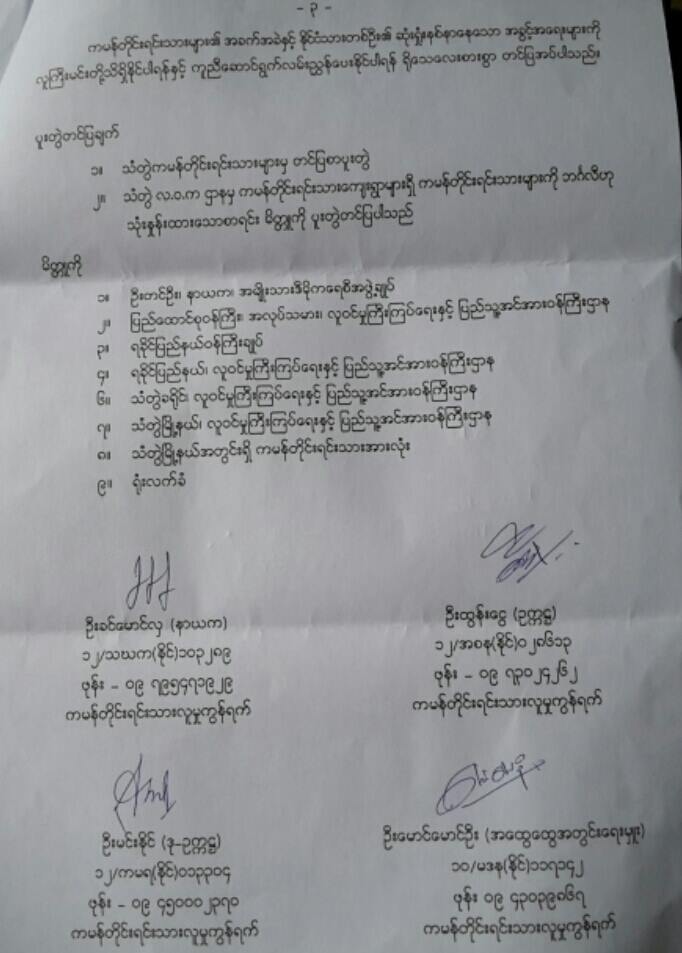 - ၃ -
ကမန်တိုင်းရင်းသားများ၏ အခက်အခဲနှင့် နိုင်ငံသားတစ်ဦး၏ ဆုံးရှုံးနစ်နာနေသော အခွင့်အရေးများကို
လူကြီးမင်းတို့သိရှိနိုင်ပါရန်နှင့် ကူညီဆောင်ရွက်လမ်းညွှန်ပေးနိုင်ပါရန် ရိုသေလေးစားစွာ တင်ပြအပ်ပါသည်။
ပူးတွဲတင်ပြချက်
၁။ သံတွဲကမန်တိုင်းရင်းသားများမှ တင်ပြစာပူးတွဲ
၂။ သံတွဲ လ.ဝ.က ဌာနမှ ကမန်တိုင်းရင်းသားကျေးရွာများရှိ ကမန်တိုင်းရင်းသားများကို ဘင်္ဂလီဟု
သုံးနှုန်းထားသောစာရင်း မိတ္တူကို ပူးတွဲတင်ပြပါသည်
မိတ္တူကို
၁။ ဦးတင်ဦး၊ နာယက၊ အမျိုးသားဒီမိုကရေစီအဖွဲ့ချုပ်
၂။ ပြည်ထောင်စုဝန်ကြီး၊ အလုပ်သမား၊ လူဝင်မှုကြီးကြပ်ရေးနှင့် ပြည်သူ့အင်အားဝန်ကြီးဌာန
၃။ ရခိုင်ပြည်နယ်ဝန်ကြီးချုပ်
၄။ ရခိုင်ပြည်နယ်၊ လူဝင်မှုကြီးကြပ်ရေးနှင့် ပြည်သူ့အင်အားဝန်ကြီးဌာန
၆။ သံတွဲခရိုင်၊ လူဝင်မှုကြီးကြပ်ရေးနှင့် ပြည်သူ့အင်အားဝန်ကြီးဌာန
၇။ သံတွဲမြို့နယ်၊ လူဝင်မှုကြီးကြပ်ရေးနှင့် ပြည်သူ့အင်အားဝန်ကြီးဌာန
၈။ သံတွဲမြို့နယ်အတွင်းရှိ ကမန်တိုင်းရင်းသားအားလုံး
၉။ ရုံးလက်ခံ
ဦးခင်မောင်လှ (နာယက)
၁၂/သဃက(နိုင်)၁၀၃၂၈၉
ဖုန်း - ၀၉ ၇၉၅၄၇၁၉၂၉
ကမန်တိုင်းရင်းသားလူမှုကွန်ရက်
ဦးထွန်းငွေ (ဥက္ကဋ္ဌ)
၁၂/အစန(နိုင်)၀၂၈၆၁၃
ဖုန်း - ၀၉ ၇၃၀၂၄၂၆၂
ကမန်တိုင်းရင်းသားလူမှုကွန်ရက်
ဦးမင်းနိုင် (ဒု-ဥက္ကဋ္ဌ)
၁၂/ကမရ(နိုင်)၀၁၃၃၀၄
ဖုန်း - ၀၉ ၄၅၀၀၀၂၃၇၀
ကမန်တိုင်းရင်းသားလူမှုကွန်ရက်
ဦးမောင်မောင်ဦး (အထွေထွေအတွင်းရေးမှူး)
၁၀/မဒန(နိုင်)၁၁၇၁၄၂
ဖုန်း ၀၉ ၄၃၀၃၉၈၆၇
ကမန်တိုင်းရင်းသားလူမှုကွန်ရက်